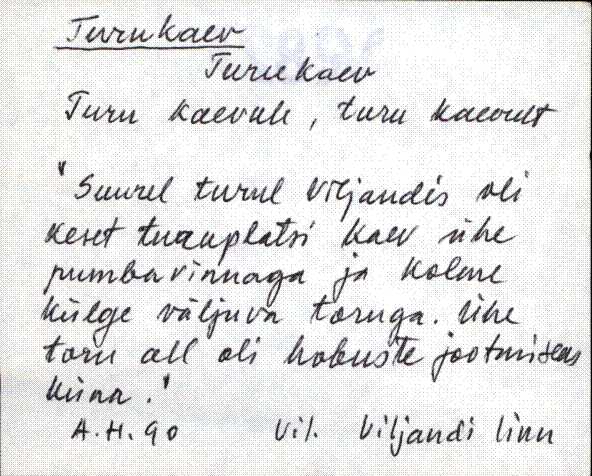 Turukaev
Turukaev
Turu kaevule, turu kaevult
"Suurel turul Viljandis oli
keset turuplatsi kaev ühe
pumbavinnaga ja kolme
külge väljuva toruga. Ühe
toru all oli hobuste jootmiseks
küna."
A.H. 90 Vil. Viljandi linn